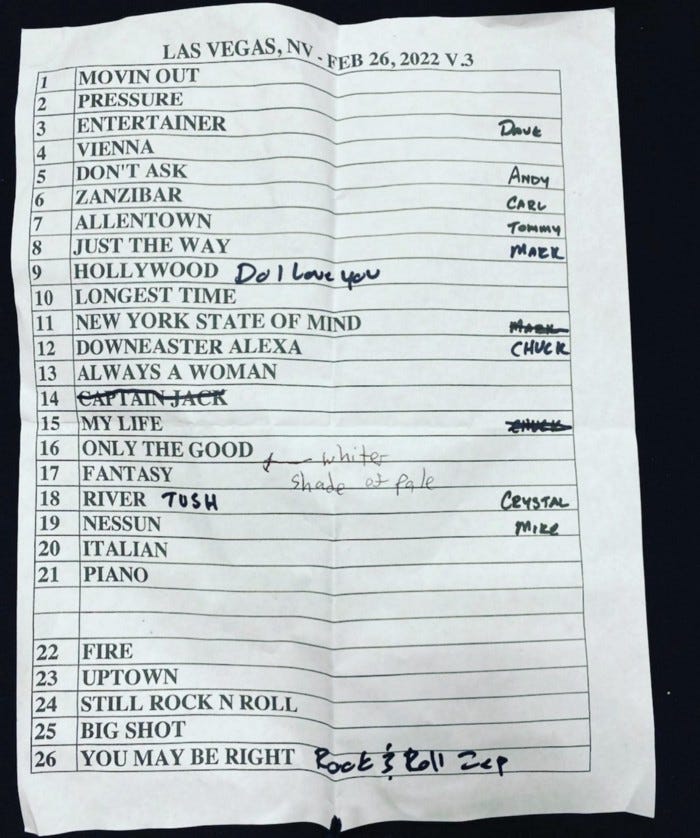 LAS VEGAS, NV - FEB 26, 2022 V.3
1 MOVIN OUT
2 PRESSURE
3 ENTERTAINER Dave
4 VIENNA
5 DON'T ASK ANDY
6 ZANZIBAR CARL
7 ALLENTOWN TOMMY
8 JUST THE WAY MARK
9 HOLLYWOOD Do I Love you
10 LONGEST TIME
11 NEW YORK STATE OF MIND MARK
12 DOWNEASTER ALEXA CHUCK
13 ALWAYS A WOMAN
14 CAPTAIN JACK
15 MY LIFE CHUCK
16 ONLY THE GOOD whiter
17 FANTASY shade of pale
18 RIVER TUSH CRYSTAL
19 NESSUN MIKE
20 ITALIAN
21 PIANO
22 FIRE
23 UPTOWN
24 STILL ROCK N ROLL
25 BIG SHOT
26 YOU MAY BE RIGHT Rock & Roll Zep